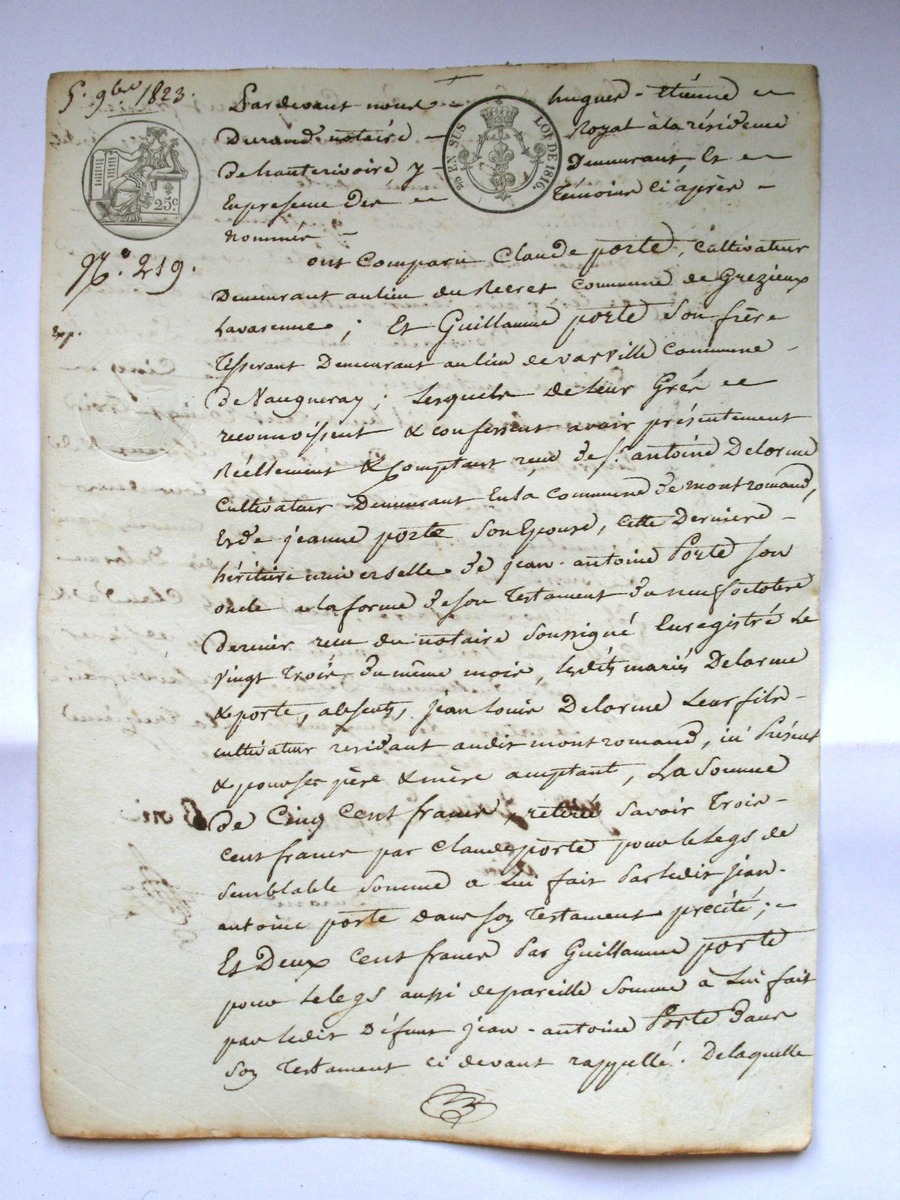 5. 9bre 1823.
Pardevant nous hugues-étienne
Durand notaire Royal à la résidence
de hauterivoire y Demeurant Et
En presence des Témoins ci après
nommés
25c
EN SUS LOI DE 1816.
No. 219.
Exp.
ont Comparu Claude porte, Cultivateur
Demeurant au lieu du Recret Commune de Grezieux
Lavarenne; Et Guillaume porte Son frère
Tisserant Demeurant au lieu de varville Commune
de Vaugneray; Lesquels de Leur Grés
reconnoissent & confessent avoir présentement
Réellement & Comptant reçu de Sr. antoine Delorme
Cultivateur Demeurant En la Commune de montromand,
Et de jeanne porte Son Epouse, Cette Derniere
héritière universelle de jean-antoine Porte Son
oncle a la forme de Son Testament du neuf octobre
Dernier reçu du notaire Soussigné Enregistré Le
vingt Trois du même mois, Lesdits mariés Delorme
& porte, absents, jean Louis Delorme Leur fils
cultivateur residant audit montromand, ici Présent
& pour Ses père & mère acceptant, La Somme
de Cinq Cent francs, retirée Savoir Trois
Cent francs par Claude porte pour le legs de
Semblable Somme a Lui fait Par ledit jean-
antoine porte dans Son Testament precité;
Et Deux Cent francs Par Guillaume porte
pour le legs aussi de pareille Somme à Lui fait
par ledit Défunt jean-antoine Porte Dans
Son Testament ci devant rappellé. De laquelle